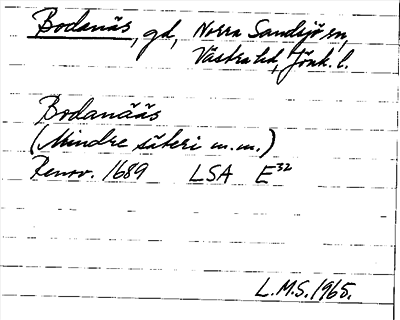 Bodanäs, gd, Norra Sandsjö sn,
Västra hd, Jönk. l.
Bodanääs
(Mindre säteri m.m.)
Renov. 1689 LSA E³²
L.M.S. 1965.